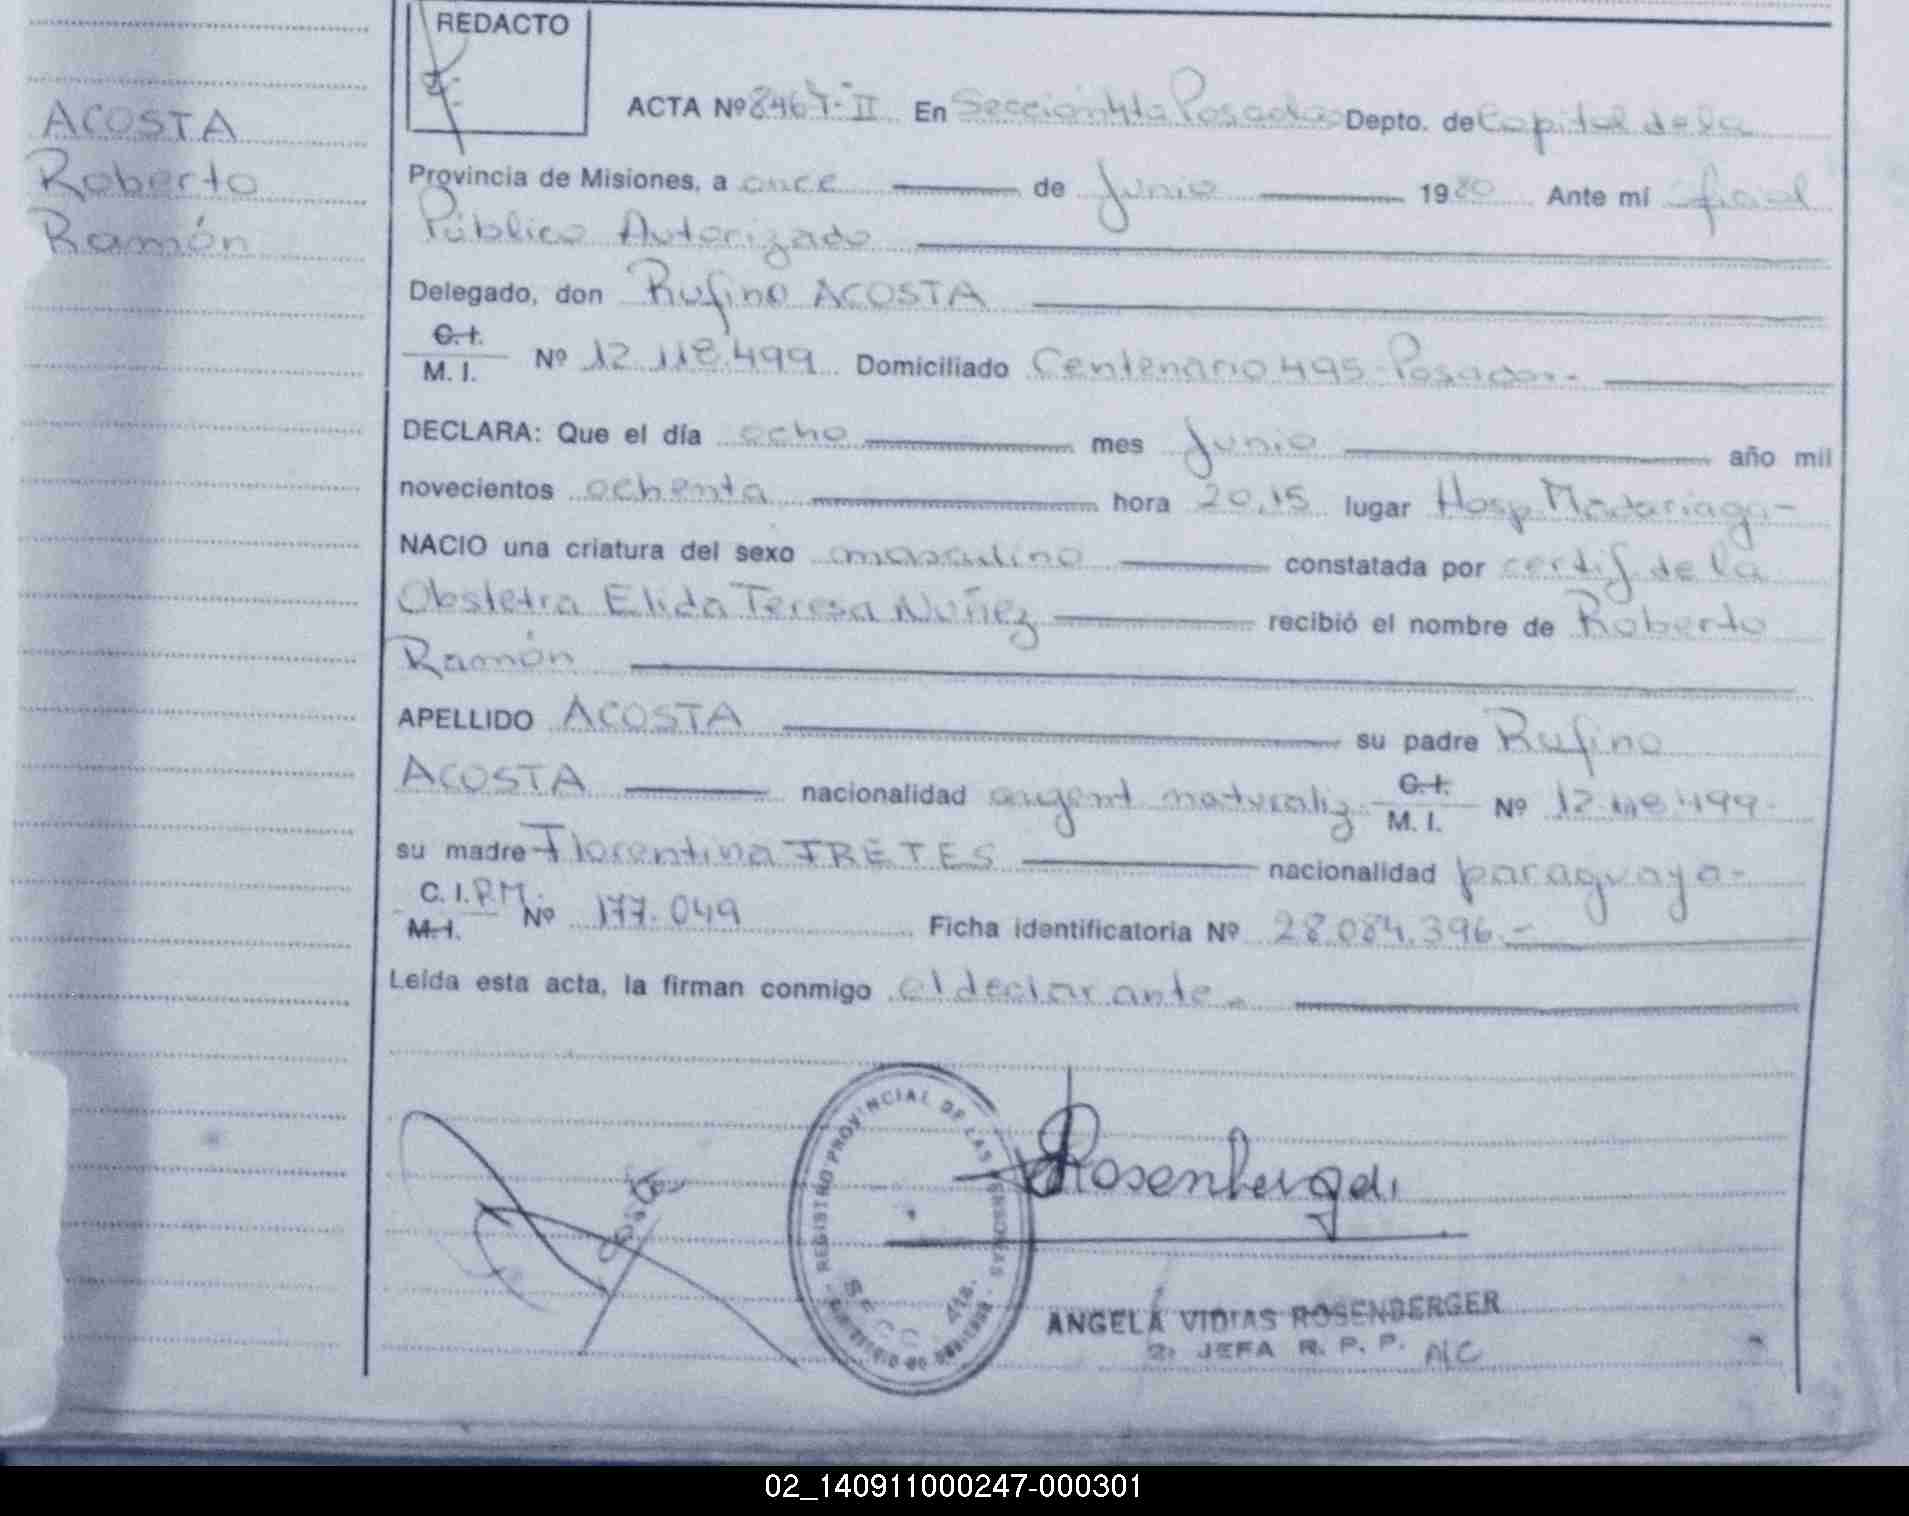 REDACTO
ACOSTA
Roberto
Ramón
ACTA Nº 8467-II En Sección 4ta Posadas Depto. de Capital de la
Provincia de Misiones, a once de Junio 1980 Ante mí oficial
Público Autorizado
Delegado, don Rufino ACOSTA
C.I.
M. I. Nº 12.118.499 Domiciliado Centenario 495-Posadas.-
DECLARA: Que el día ocho mes Junio año mil
novecientos ochenta hora 20,15 lugar Hosp. Madariaga-
NACIO una criatura del sexo masculino constatada por certif de la
Obstetra Elida Teresa Nuñez recibió el nombre de Roberto
Ramón
APELLIDO ACOSTA su padre Rufino
ACOSTA nacionalidad argent naturaliz. C.I.
M. I. Nº 12.118.499-
su madre Florentina FRETES nacionalidad paraguaya-
C. I. P.M.
M.I. Nº 177.049 Ficha identificatoria Nº 28.084.396.-
Leída esta acta, la firman conmigo el declarante.-
REGISTRO PROVINCIAL DE LAS PERSONAS
SECC 4ta.
Acosta
Rosenberg
ANGELA VIDIAS ROSENBERGER
2º JEFA R. P. P. A/C
02_140911000247-000301